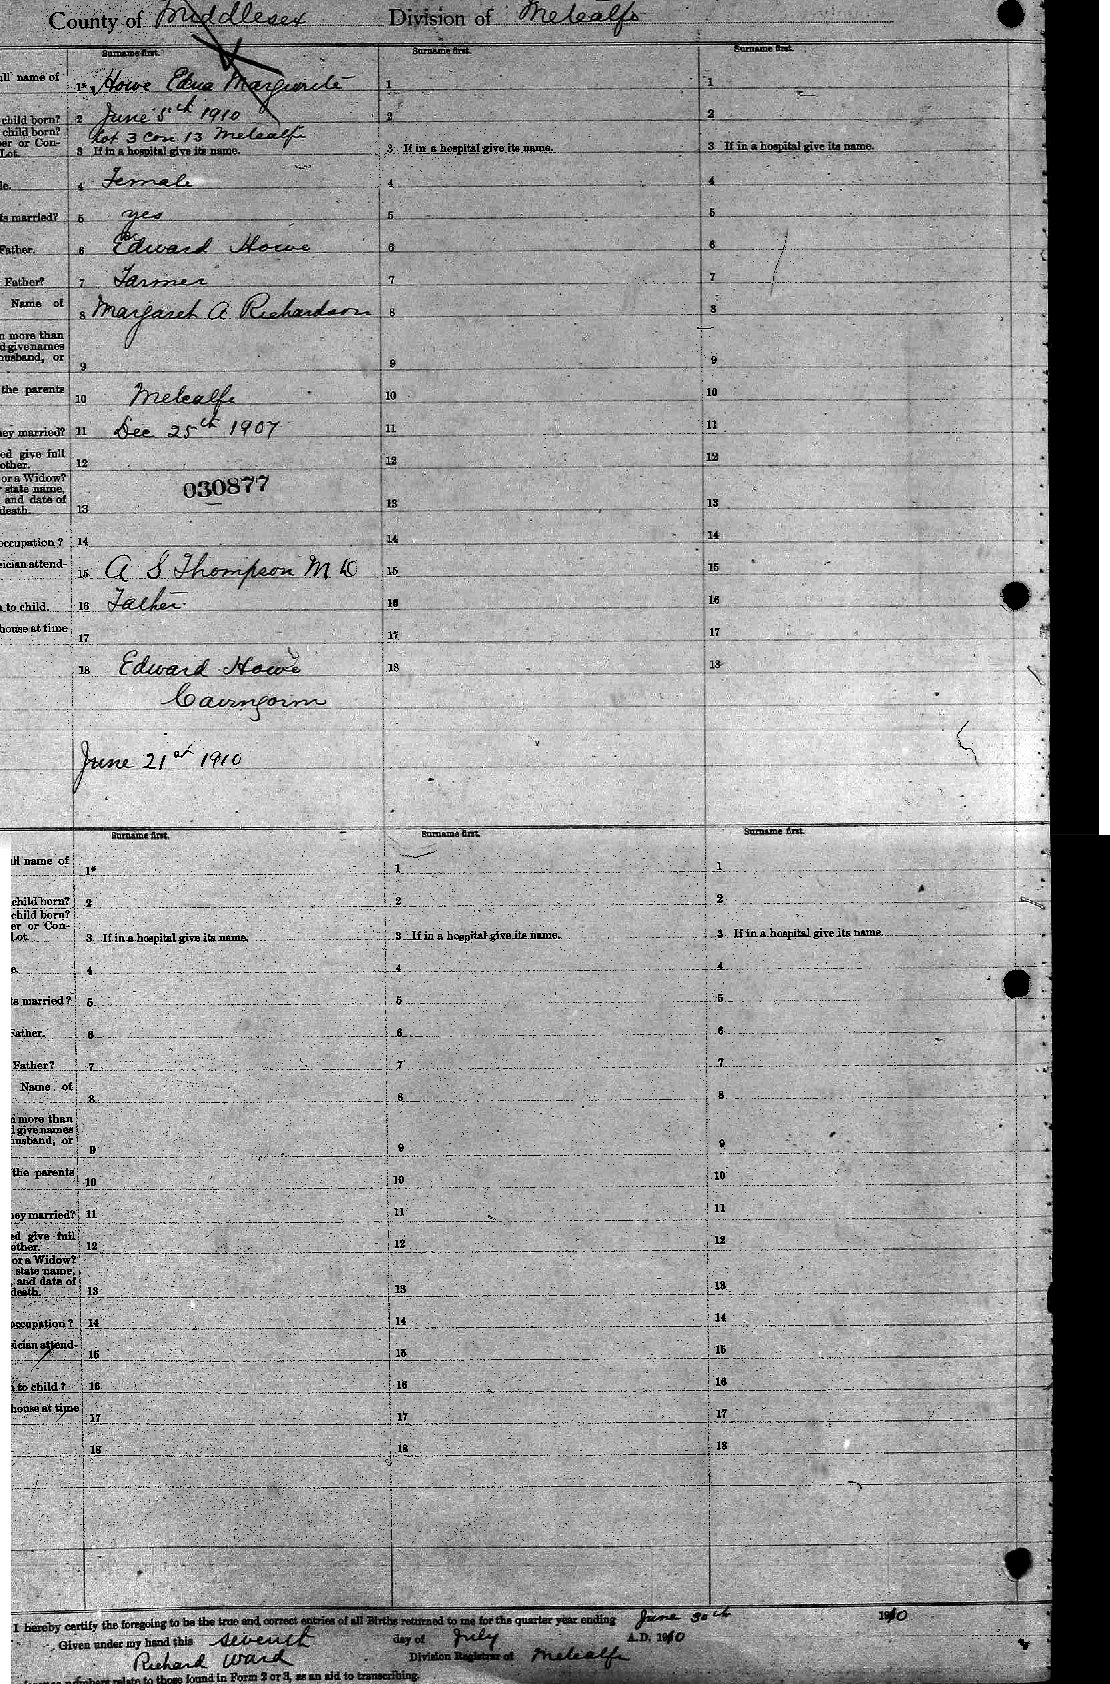 County of Middlesex Division of Metcalfe
Surname first. Surname first. Surname first.
ull name of 1* Howe Edna Marguerite 1 1
child born? 2 June 5th 1910 2 2
child born? Lot 3 Con 13 Metcalfe
er or Con-
Lot. 3 If in a hospital give its name. 3 If in a hospital give its name. 3 If in a hospital give its name.
le. 4 Female 4 4
ts married? 5 yes 5 5
Father. 6 Edward Howe 6 6
Father? 7 Farmer 7 7
Name of 8 Margaret A Richardson 8 8
n more than
d give names
husband, or 9 9 9
the parents 10 Metcalfe 10 10
ey married? 11 Dec 25th 1907 11 11
ed give full
other. 12 12 12
or a Widow?
state name, 030877
and date of
death. 13 13 13
occupation? 14 14 14
ician attend- 15 A S Thompson M D 15 15
to child. 16 Father 16 16
house at time 17 17 17
18 Edward Howe 18 18
Cairngorm
June 21st 1910
Surname first. Surname first. Surname first.
ull name of 1* 1 1
child born? 2 2 2
child born?
er or Con-
Lot. 3 If in a hospital give its name. 3 If in a hospital give its name. 3 If in a hospital give its name.
e. 4 4 4
ts married? 5 5 5
Father. 6 6 6
Father? 7 7 7
Name of 8 8 8
more than
give names
husband, or 9 9 9
the parents 10 10 10
ey married? 11 11 11
ed give full
other. 12 12 12
or a Widow?
state name,
and date of
death. 13 13 13
occupation? 14 14 14
ician attend- 15 15 15
to child? 16 16 16
house at time 17 17 17
18 18 18
I hereby certify the foregoing to be the true and correct entries of all Births returned to me for the quarter year ending June 30th 1910
Given under my hand this seventh day of July A.D. 1910
Richard Ward Division Registrar of Metcalfe
numbers relate to those found in Form 2 or 3, as an aid to transcribing.